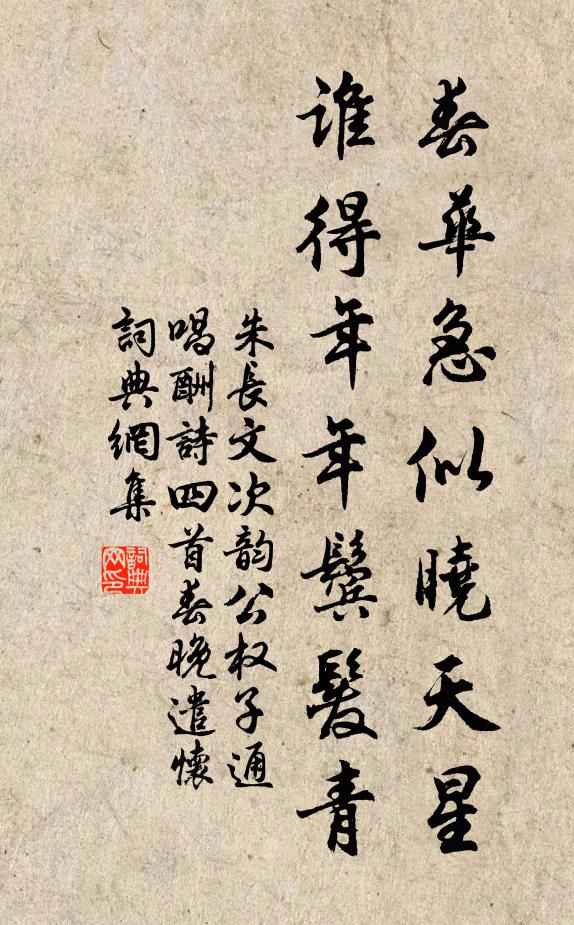 春華急似曉天星
誰得年年鬢髮青
朱長文次韵公权子通
唱酬詩四首春晚遣懷
詞典網集
詞典网印